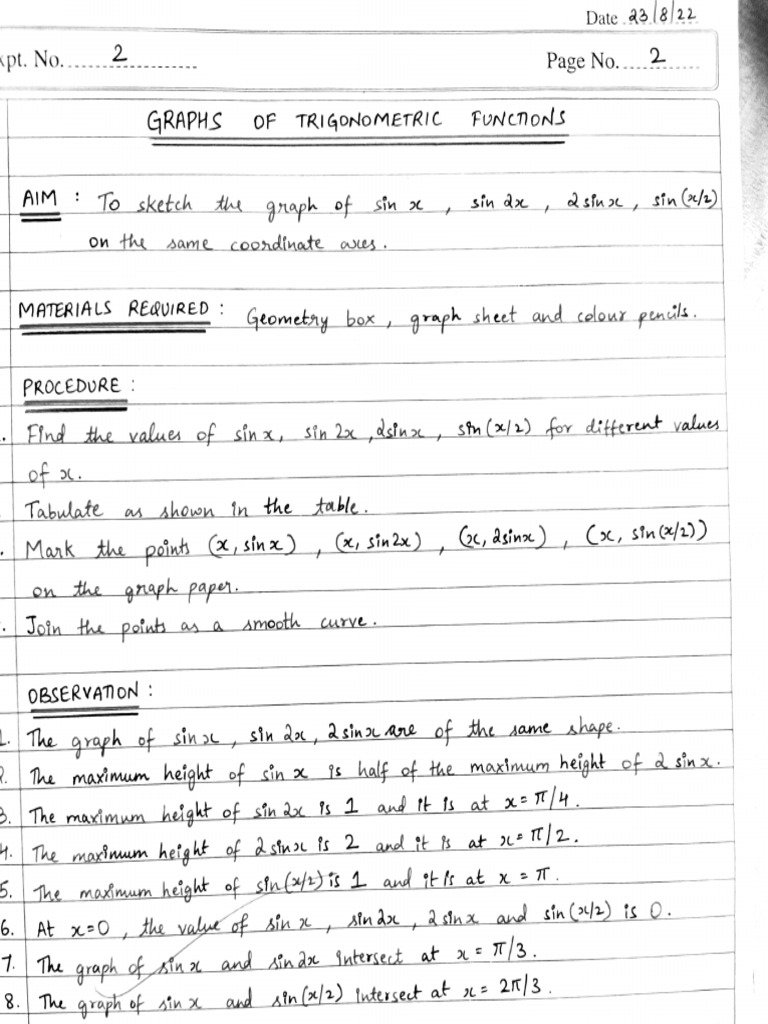 Date 23/8/22
xpt. No. 2 Page No. 2
GRAPHS OF TRIGONOMETRIC FUNCTIONS
AIM : To sketch the graph of sin x , sin 2x , 2 sin x , sin (x/2)
on the same coordinate axes .
MATERIALS REQUIRED : Geometry box , graph sheet and colour pencils .
PROCEDURE :
. Find the values of sin x, sin 2x , 2sinx , sin (x/2) for different values
of x .
Tabulate as shown in the table .
. Mark the points (x, sinx) , (x, sin2x) , (x, 2sinx) , (x, sin(x/2))
on the graph paper .
. Join the points as a smooth curve .
OBSERVATION :
1. The graph of sin x , sin 2x , 2 sin x are of the same shape .
2. The maximum height of sin x is half of the maximum height of 2 sin x .
3. The maximum height of sin 2x is 1 and it is at x = π/4 .
4. The maximum height of 2 sin x is 2 and it is at x = π/2 .
5. The maximum height of sin (x/2) is 1 and it is at x = π .
6. At x=0 , the value of sin x , sin 2x , 2 sin x and sin (x/2) is 0 .
7. The graph of sin x and sin 2x intersect at x = π/3 .
8. The graph of sin x and sin (x/2) intersect at x = 2π/3 .